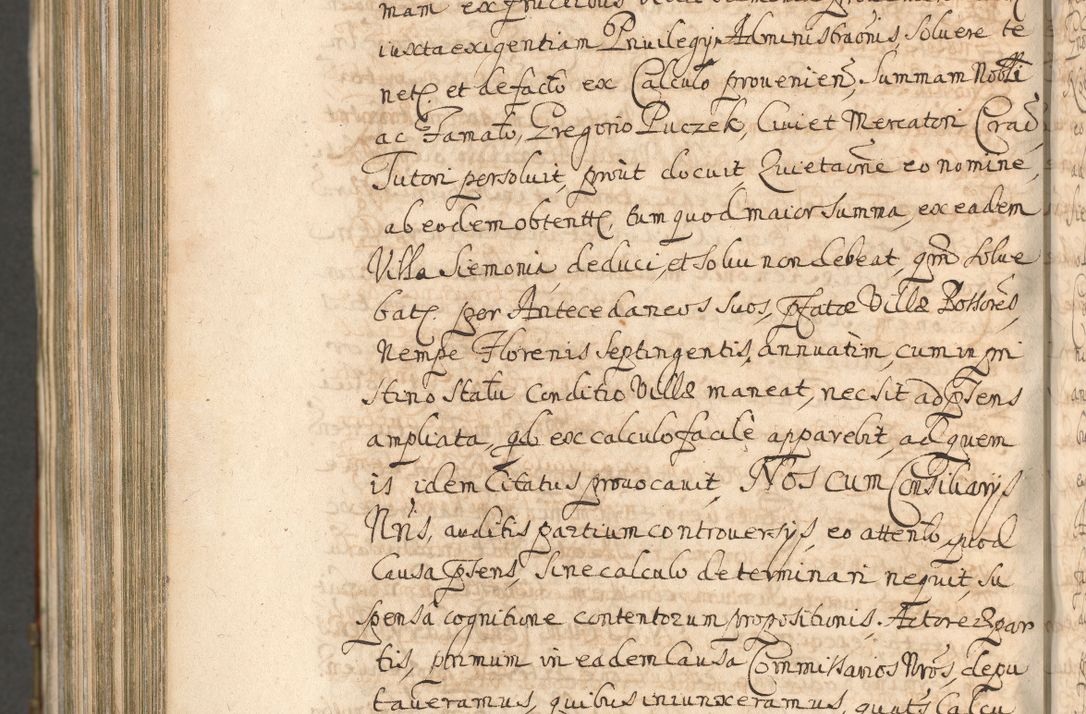 mam ex fructibus Villæ
iuxta exigentiam Priuilegij Administraõnis, soluere te
net͂. et de facto ex Calculo prouenien͂. Summam Nobli
ac Famato, Gregorio Puczek, Ciui et Mercatori Crac͂,
Tutori persoluit, proùt docuit, Quietaõne eo nomine,
ab eodem obtentt͂. tum quod maior summa, ex eadem
Villa Siemonia deduci, et solui non debeat, qm̃ solue
bat͂. per Antecedaneos suos, pfatæ Villæ Possores͂,
Nempe Florenis Septingentis, annuatìm, cum in pri
stino statu Conditio Villæ maneat, nec sit ad p͂sens
ampliata, qd ex calculo facile apparebit, ad quem
is idem Citatus prouocauit, NOS CUM Consiliarijs
Nr̃is, auditis partium controuersijs, eo attento, quod
Causa p͂sens, sine calculo determinari nequit, su
spensâ cognitione contentorum propositionis. Actoreæ par
tis, primum in eadem Causa Commissarios Nr̃os, depu
taueramus, quibus iniunxeramus, quats͂ Calcu